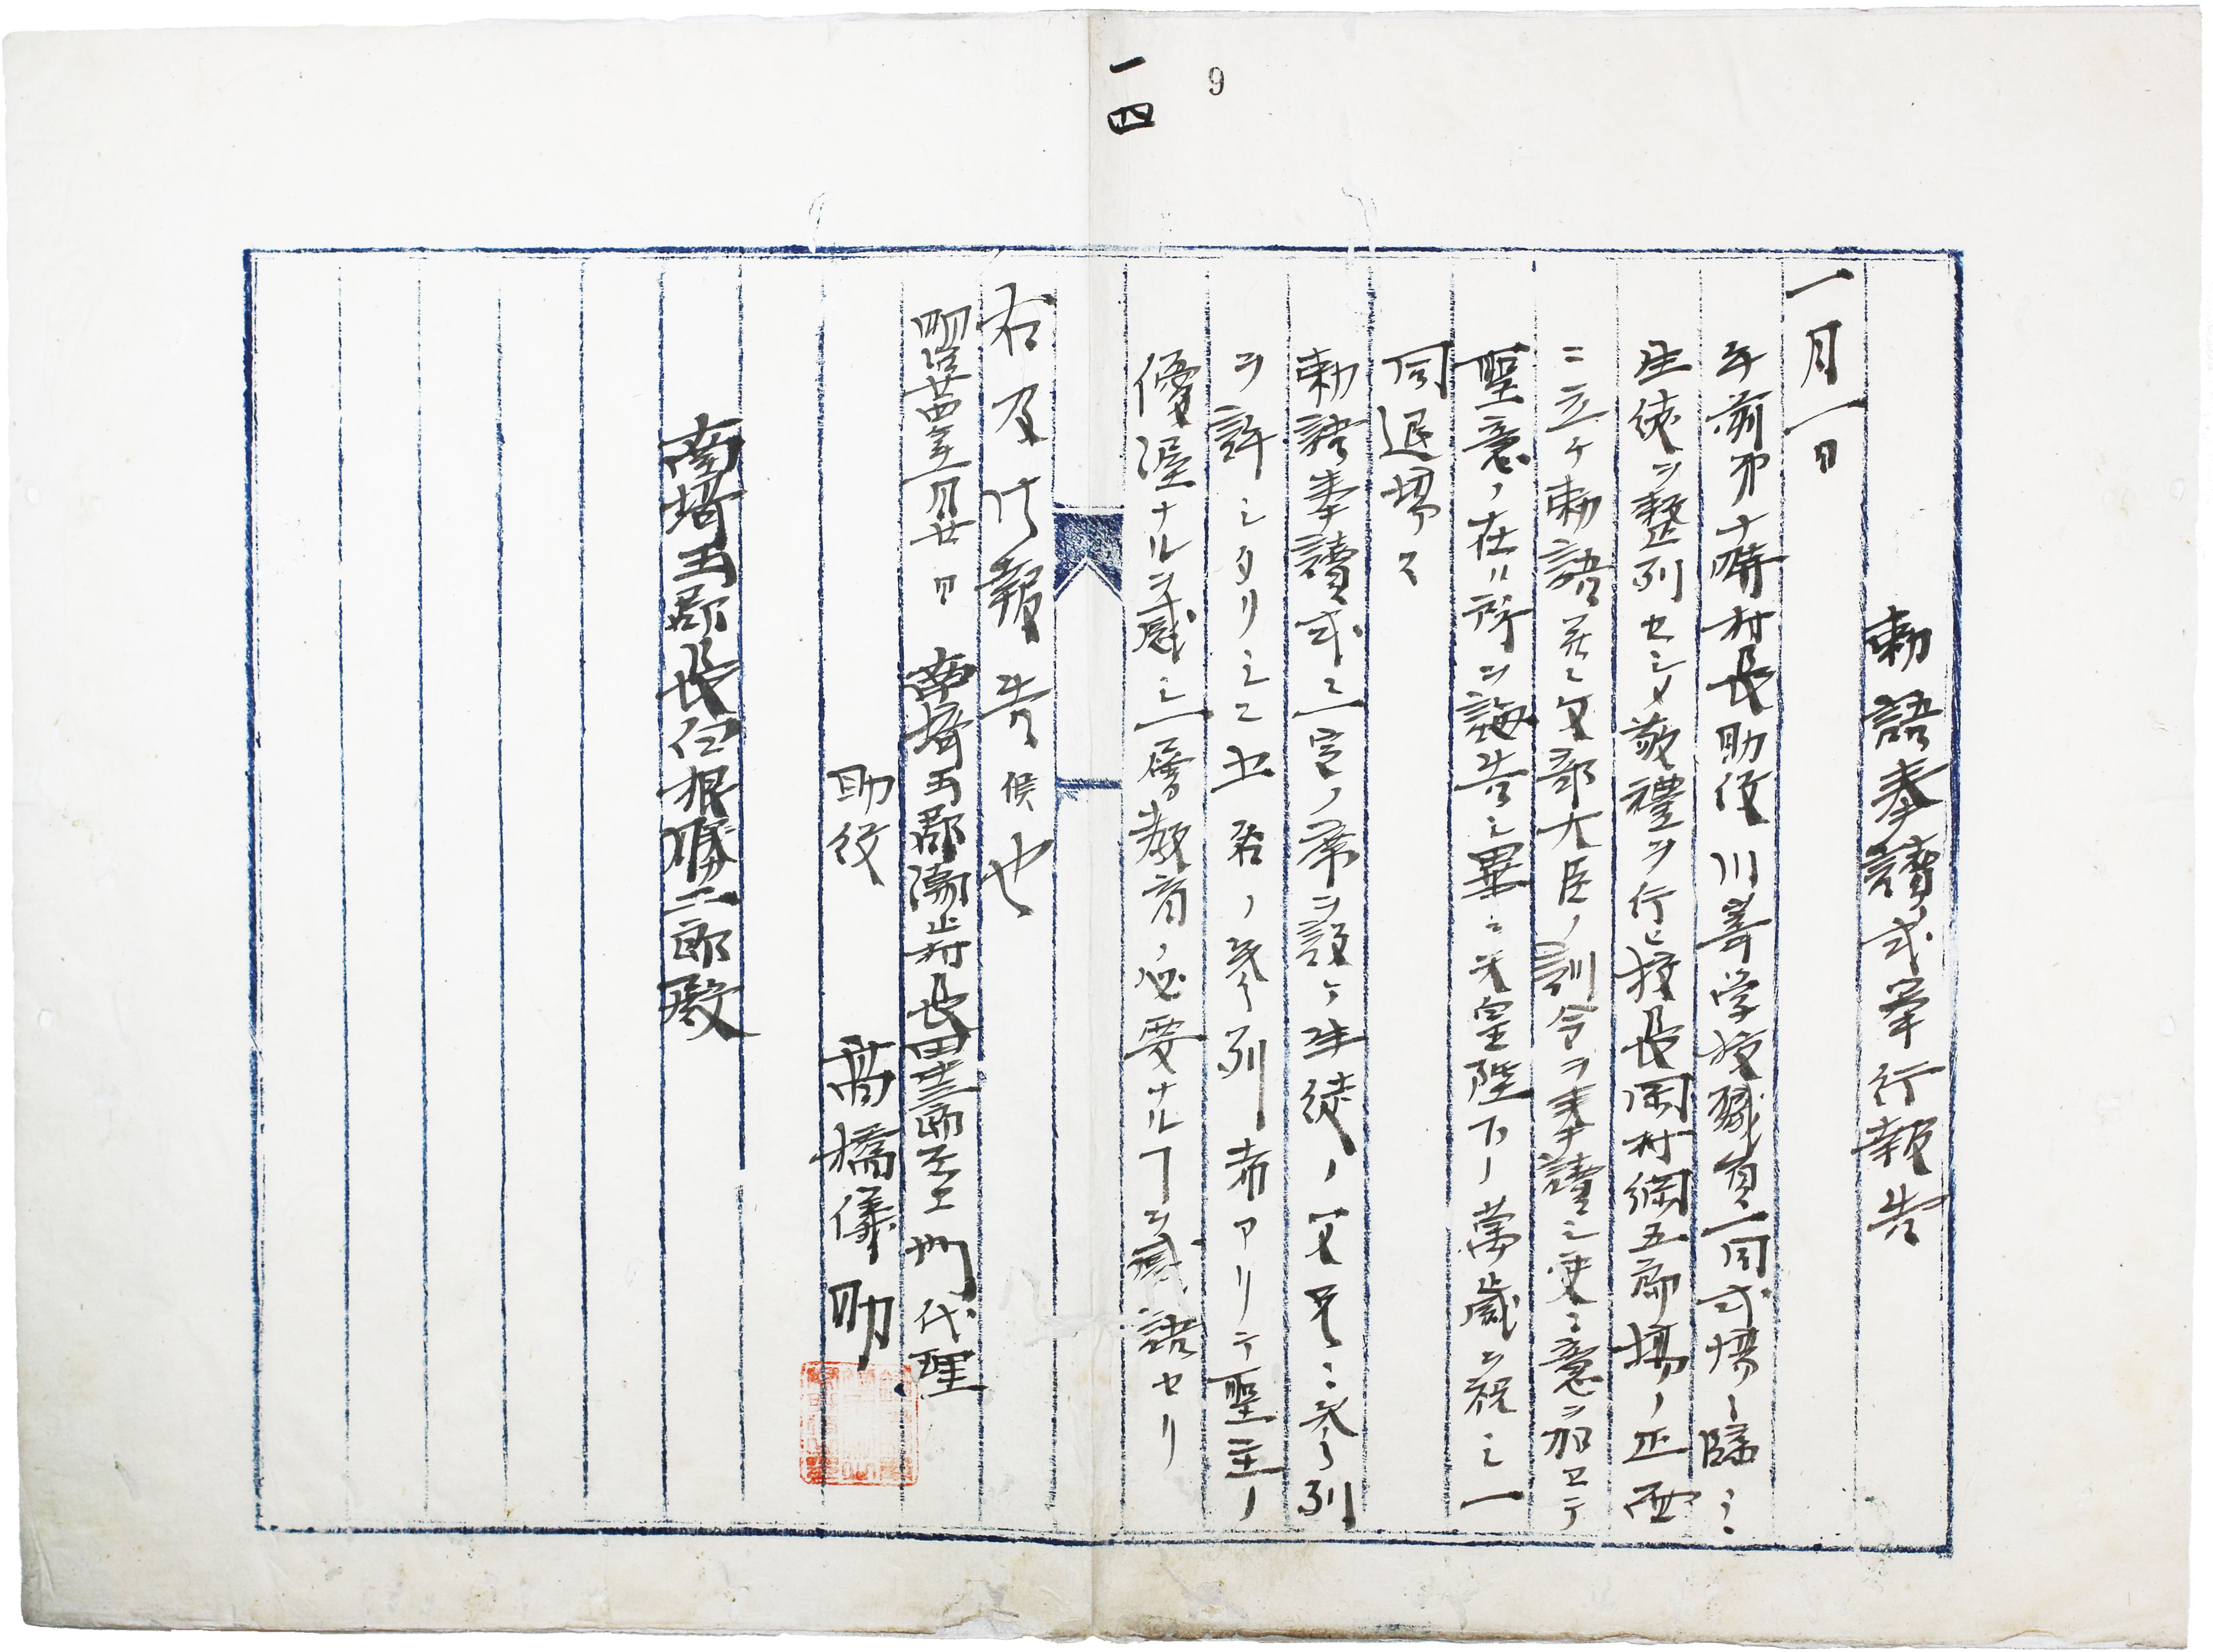 一四
9
勅語奉讀式挙行報告
一月一日
午前第十時村長助役川嵜学校職員一同式場ニ臨ミ
生徒ヲ整列セシメ敬禮ヲ行ヒ校長岡村綱五郎場ノ正面
ニ立チ勅語並ニ文部大臣ノ訓令ヲ奉讀シ更ニ意ヲ加ヱテ
聖意ノ在ル所ヲ誨告シ畢ニ天皇陛下ノ萬歳ヲ祝シ一
同退場ス
勅語奉讀式ニ一定ノ席ヲ設ケ生徒ノ父兄ニ参列
ヲ許シタリシニ五名ノ参列者アリテ聖主ノ
優渥ナルヲ感シ一層教育ノ必要ナルヿヲ感語セリ
右及行報告候也
明治廿四年一月廿日 南埼玉郡潮止村長田中三郎左エ門代理
助役 髙橋儀助
南埼玉郡長 根勝二郎殿